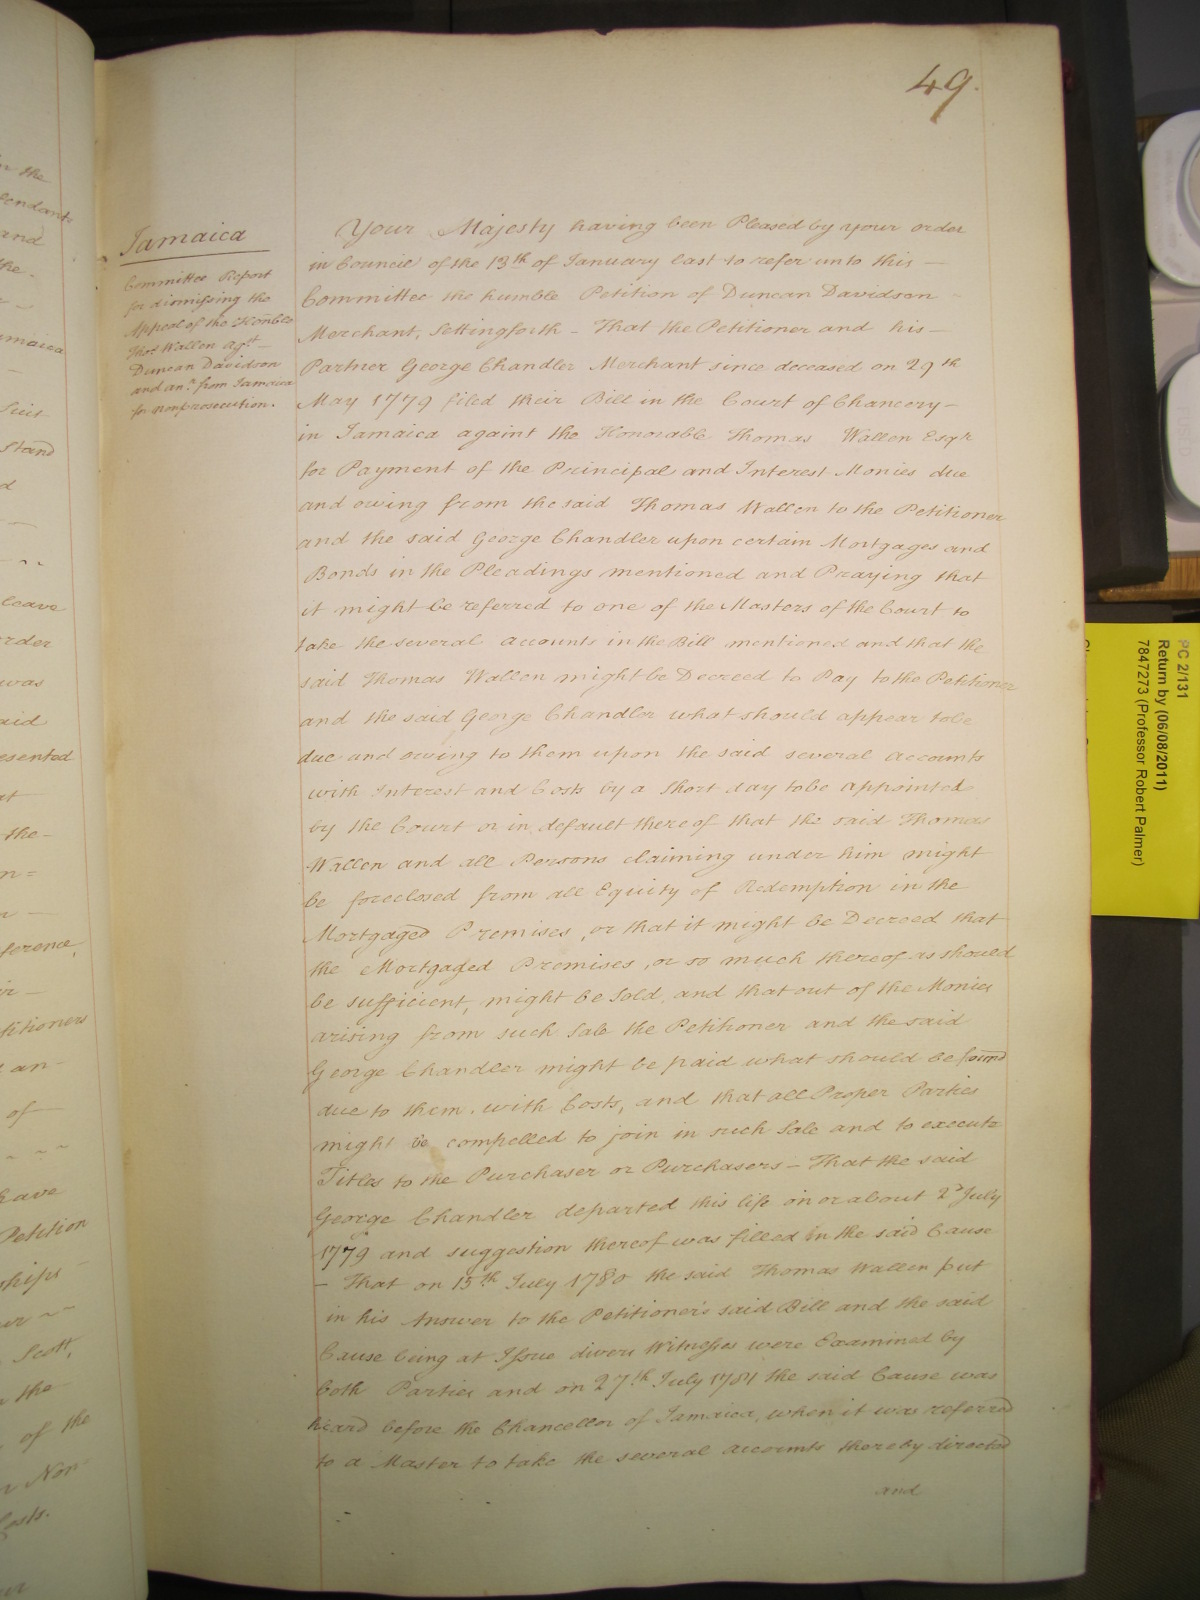 49.
Jamaica
Committee Report
for dismissing the
Appeal of the Honble
Thos. Wallen agst.
Duncan Davidson
and anr. from Jamaica
for nonprosecution.
Your Majesty having been Pleased by your order
in Council of the 13th of January last to refer unto this —
Committee the humble Petition of Duncan Davidson
Merchant, Settingforth - That the Petitioner and his —
Partner George Chandler Merchant since deceased on 29th
May 1779 filed their Bill in the Court of Chancery —
in Jamaica againt the Honorable Thomas Wallen Esqr
for Payment of the Principal and Interest Monies due
and owing from the said Thomas Wallen to the Petitioner
and the said George Chandler upon certain Mortgages and
Bonds in the Pleadings mentioned and Praying that
it might be referred to one of the Masters of the Court to
take the several accounts in the Bill mentioned and that the
said Thomas Wallen might be Decreed to Pay to the Petitioner
and the said George Chandler what should appear tobe
due and owing to them upon the said several accounts
with Interest and Costs by a short day tobe appointed
by the Court or in default thereof that the said Thomas
Wallen and all Persons claiming under him might
be foreclosed from all Equity of Redemption in the
Mortgaged Premises, or that it might be Decreed that
the Mortgaged Premises, or so much thereof as should
be sufficient, might be Sold, and that out of the Monies
arising from such Sale the Petitioner and the said
George Chandler might be paid what should be found
due to them, with Costs, and that all Proper Parties
might be compelled to join in such Sale and to execute
Titles to the Purchaser or Purchasers — That the said
George Chandler departed this life on or about 2d July
1779 and suggestion thereof was filled in the said Cause
— That on 15th July 1780 the said Thomas Wallen put
in his Answer to the Petitioner's said Bill and the said
Cause being at Issue divers Witnesses were Examined by
both Parties and on 27th July 1781 the said Cause was
heard before the Chancellor of Jamaica, when it was referred
to a Master to take the several accounts thereby directed
and
PC 2/131
Return by (06/08/2011)
7847273 (Professor Robert Palmer)